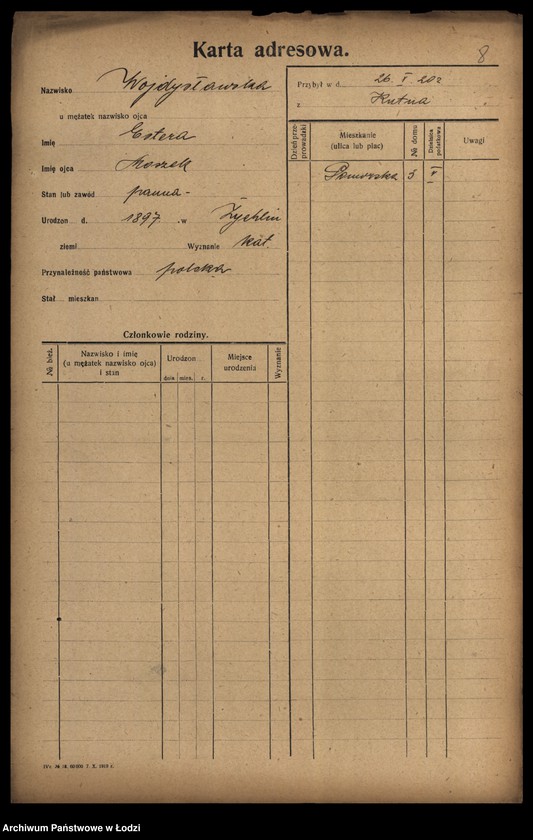 Karta adresowa.
8
Nazwisko Wojdysławska
u mężatek nazwisko ojca
Imię Estera
Imię ojca Moszek
Stan lub zawód panna -
Urodzon d. 1897 w Żychlin
ziemi Wyznanie
Przynależność państwowa polska
Stał mieszkan.
Przybył w d. 26 I 20 r
z Kutna
Dzień przeprowadzki
Mieszkanie (ulica lub plac)
№ domu
Dzielnica podatkowa
Uwagi
Pomorska 5 V
Członkowie rodziny.
№ bież.
Nazwisko i imię
(u mężatek nazwisko ojca)
i stan
Urodzon
dnia mies. r.
Miejsce
urodzenia
Wyznanie
7. X. 1919 r.
Archiwum Państwowe w Łodzi